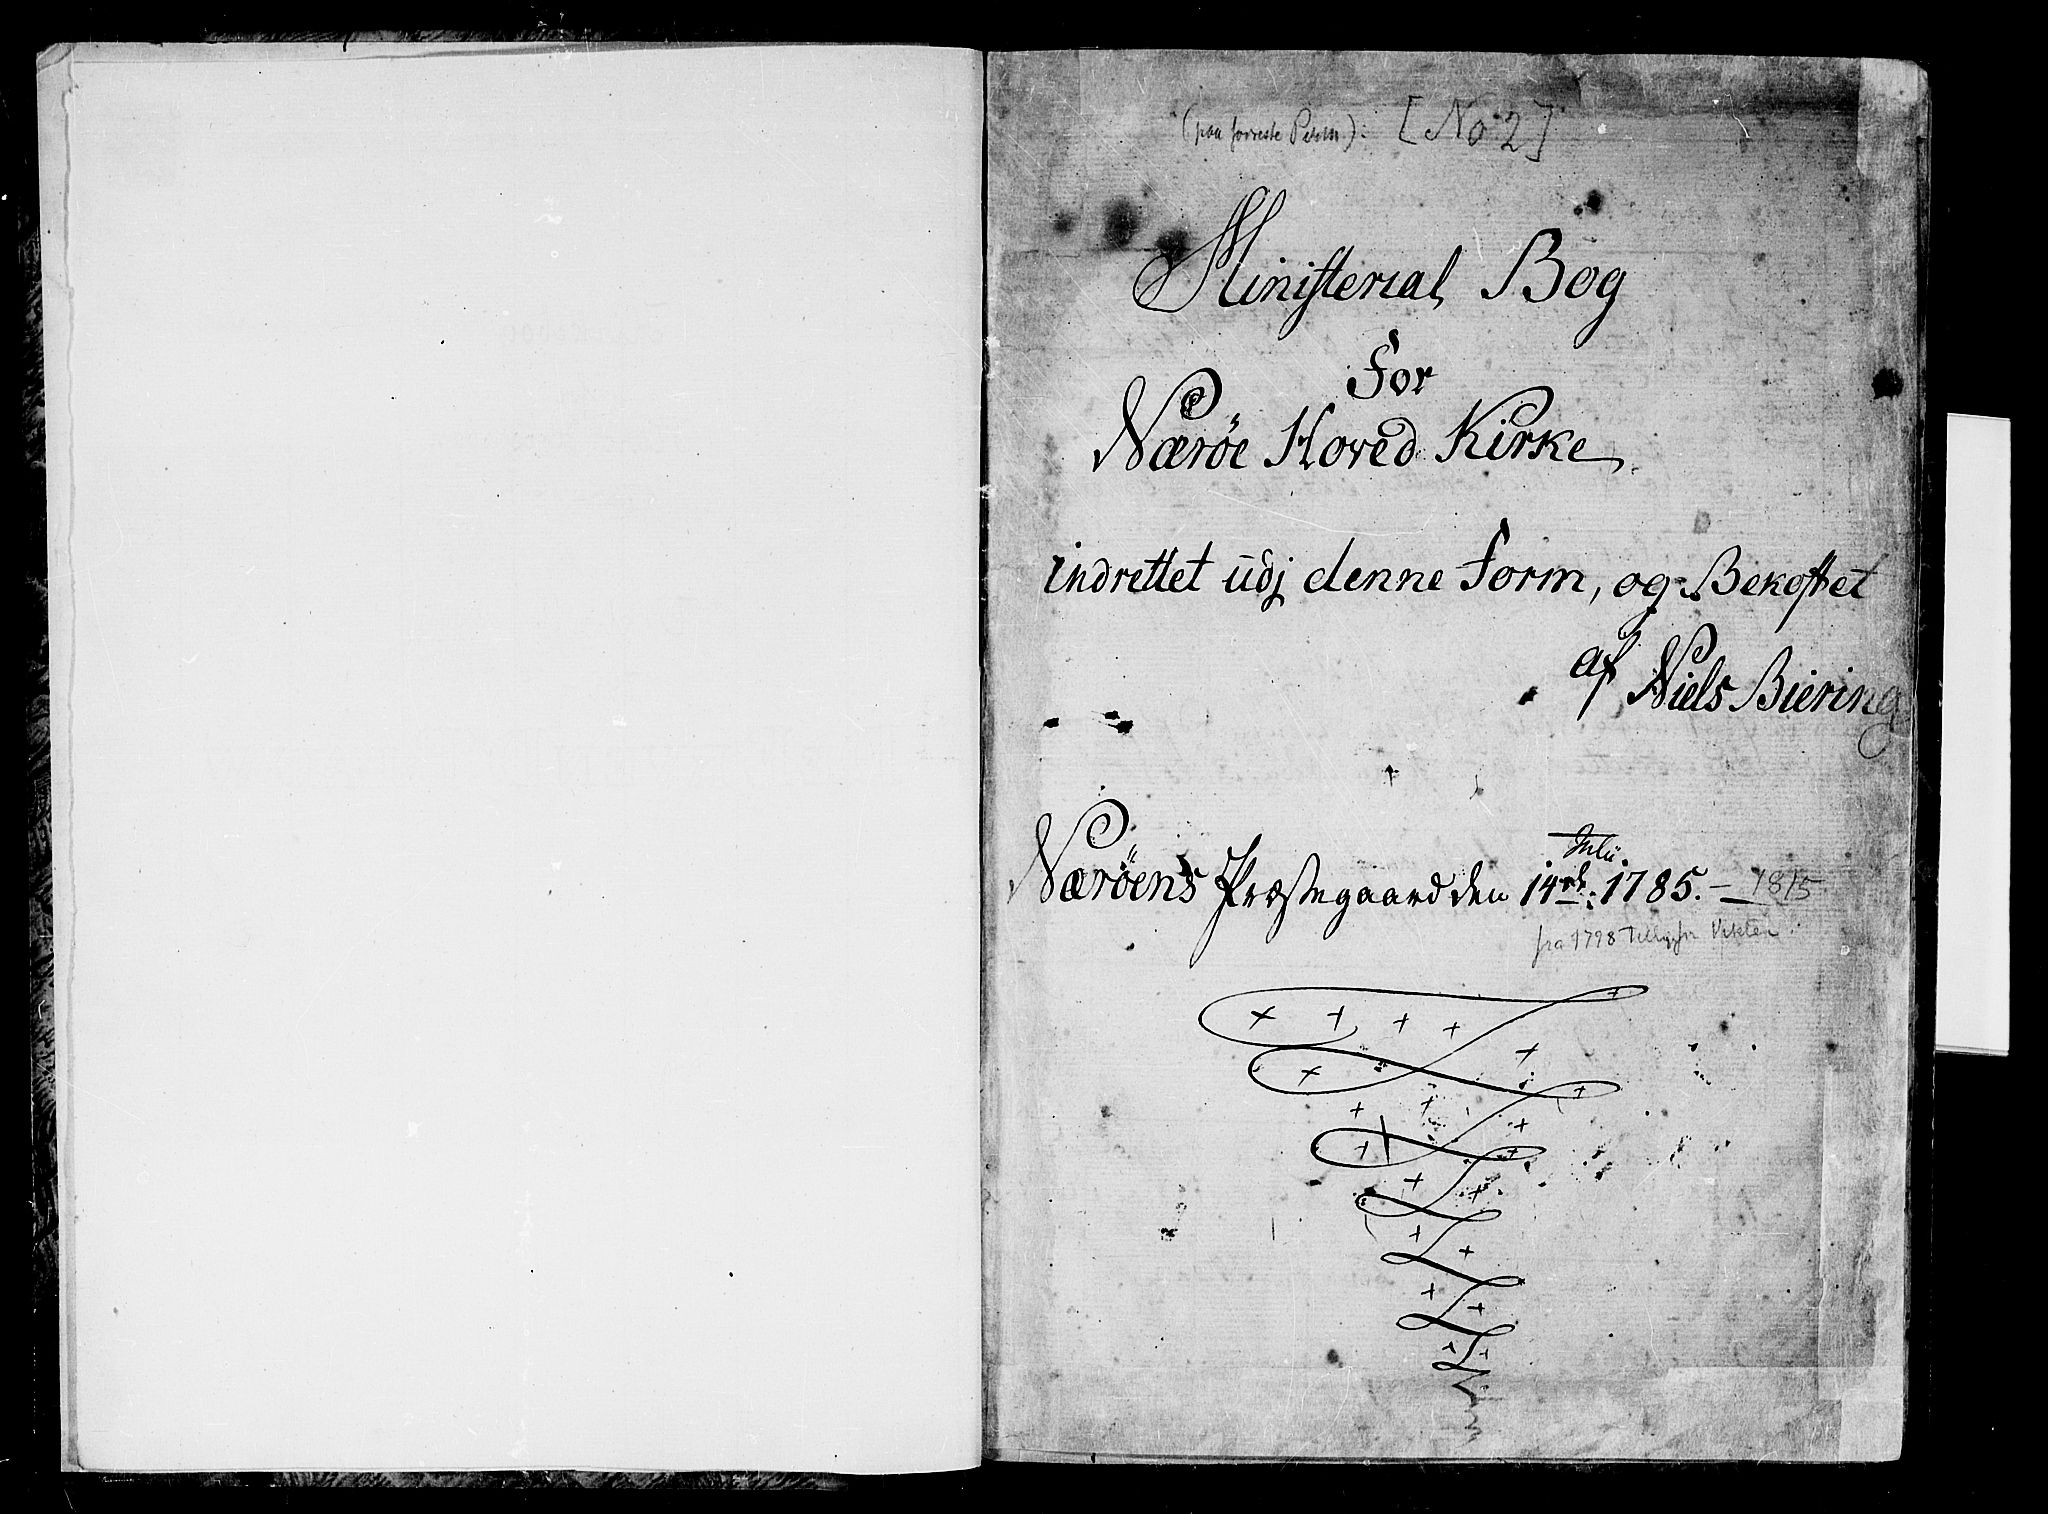 (paa forreste Perm). [No 2]
Ministerial Bog
For
Nærøe Hoved Kirke
indrettet udj denne Form, og Bekostet
af Niels Biering
Julii
Næröens Præstegaard den 14de: 1785. – 1815
fra 1798 Vikten